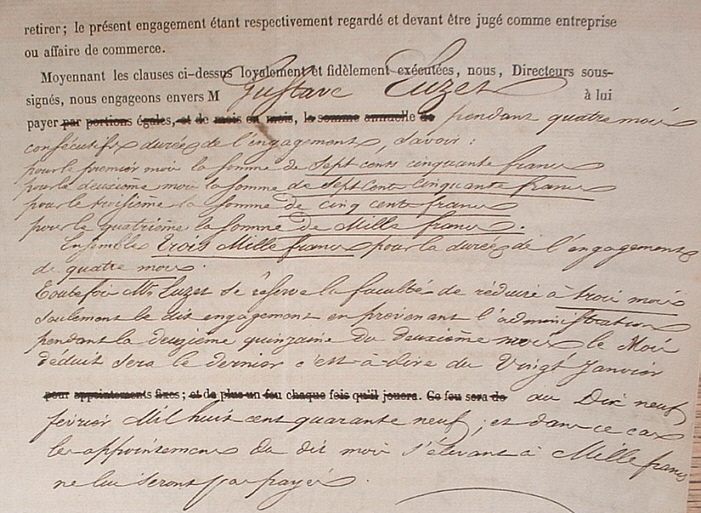 retirer; le présent engagement étant respectivement regardé et devant être jugé comme entreprise
ou affaire de commerce.
Moyennant les clauses ci-dessus loyalement et fidèlement exécutées, nous, Directeurs sous-
signés, nous engageons envers M Gustave Luzet à lui
payer par portions égales, et de mois en mois, la somme annuelle de pendant quatre mois
consécutifs durée de l'engagement, savoir:
pour le premier mois la somme de Sept cents cinquante francs
pour le deuxième mois la somme de Sept Cent cinquante francs
pour le troisième la somme de cinq cents francs
pour le quatrième la somme de Mille francs.
Ensemble Trois Mille francs pour la durée de l'engagement
de quatre mois.
Toutefois Mr Luzet se réserve la faculté de réduire à trois mois
seulement le dit engagement en prévenant l'administration
pendant la deuxième quinzaine du deuxième mois le Mois
déduit sera le dernier c'est-à-dire du Vingt Janvier
pour appointements fixes; et de plus un feu chaque fois qu'il jouera. Ce feu sera de au Dix neuf
février Mil huit cent quarante neuf; et dans ce cas
les appointemens du dit mois s'élevant à Mille francs
ne lui seront pas payés.